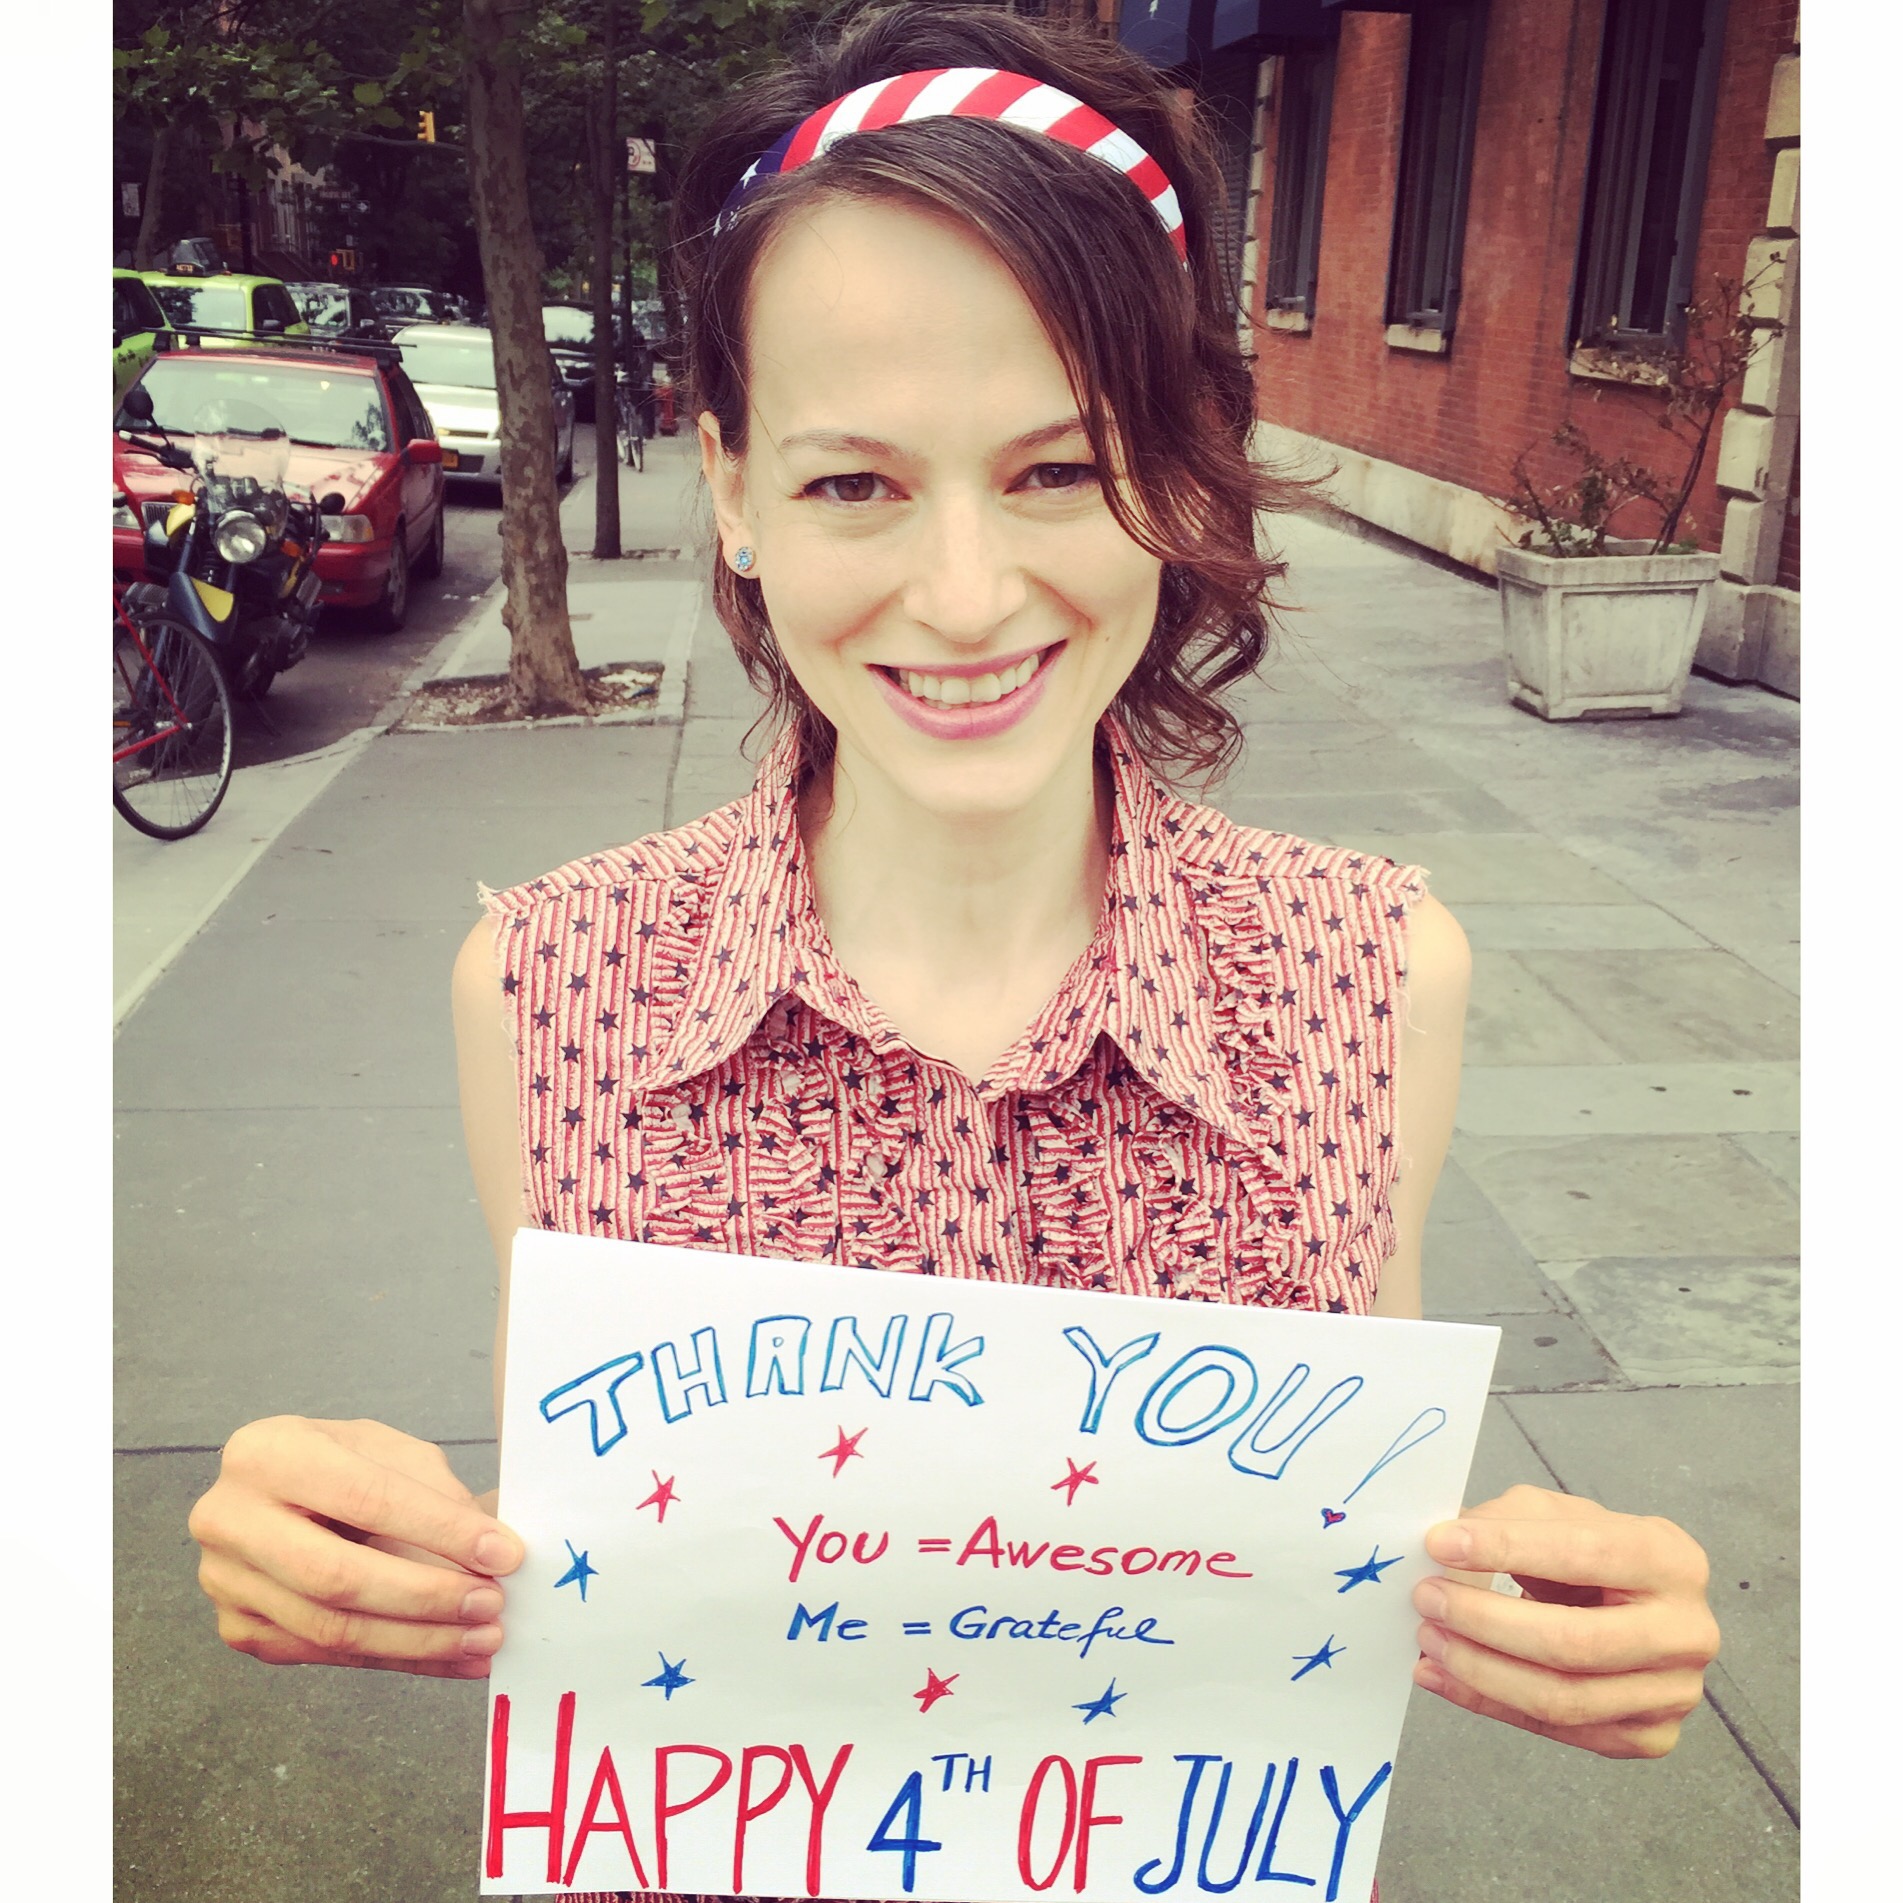 THANK YOU!
You = Awesome
Me = Grateful
HAPPY 4TH OF JULY